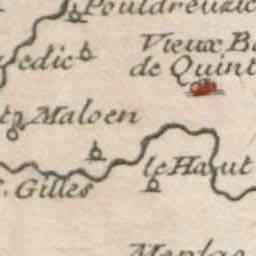 Pouldreuzic
Vieux Ba
de Quint
Maloen
le Haut
Gilles